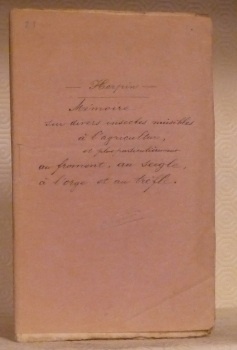 Herpin
Mémoire
sur divers insectes nuisibles
à l'agriculture,
et plus particulièrement
au froment, au seigle,
à l'orge et au trèfle.